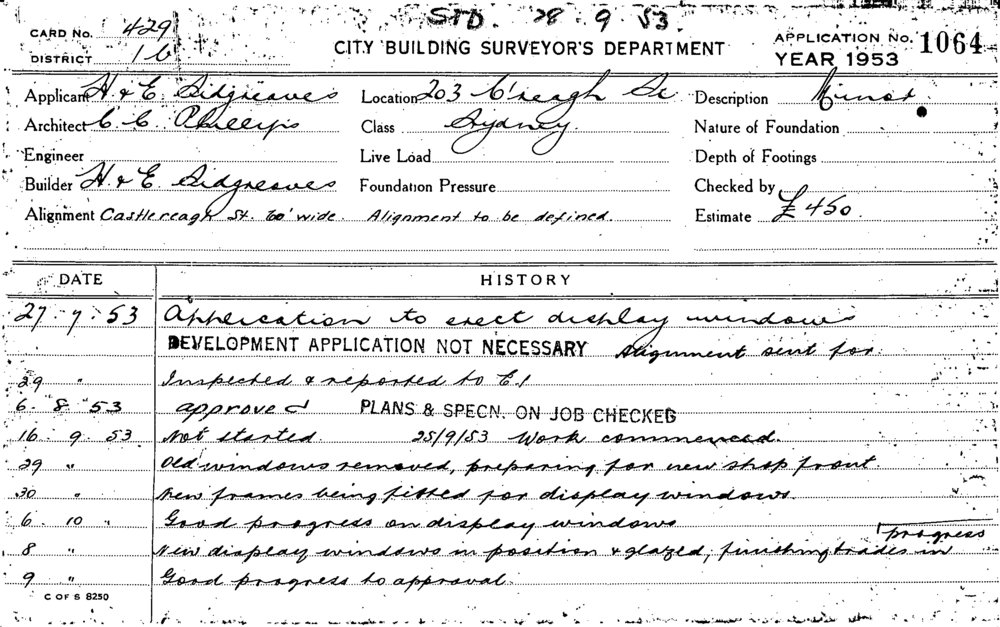 STD. 28. 9. 53.
CARD No. 429
DISTRICT 16
CITY BUILDING SURVEYOR'S DEPARTMENT
APPLICATION No. 1064
YEAR 1953
Applicant H & E. Sidgreaves Location 203 C'reagh St. Description Minor.
Architect C. C. Phillips Class Sydney. Nature of Foundation
Engineer Live Load Depth of Footings
Builder H & E. Sidgreaves Foundation Pressure Checked by
Alignment Castlereagh St. 60' wide. Alignment to be defined. Estimate £450.
DATE HISTORY
27. 7. 53 Application to erect display windows
DEVELOPMENT APPLICATION NOT NECESSARY Alignment sent for.
29 " Inspected & reported to
6. 8. 53 approved PLANS & SPECN. ON JOB CHECKED
16. 9. 53 Not started. 25/9/53 Work commenced.
29 " Old windows removed, preparing for new shop front.
30 " New frames being fitted for display windows.
6. 10 " Good progress on display windows
8 " New display windows in position & glazed, finishing trades in progress
9 " Good progress to approval.
C OF S 8250